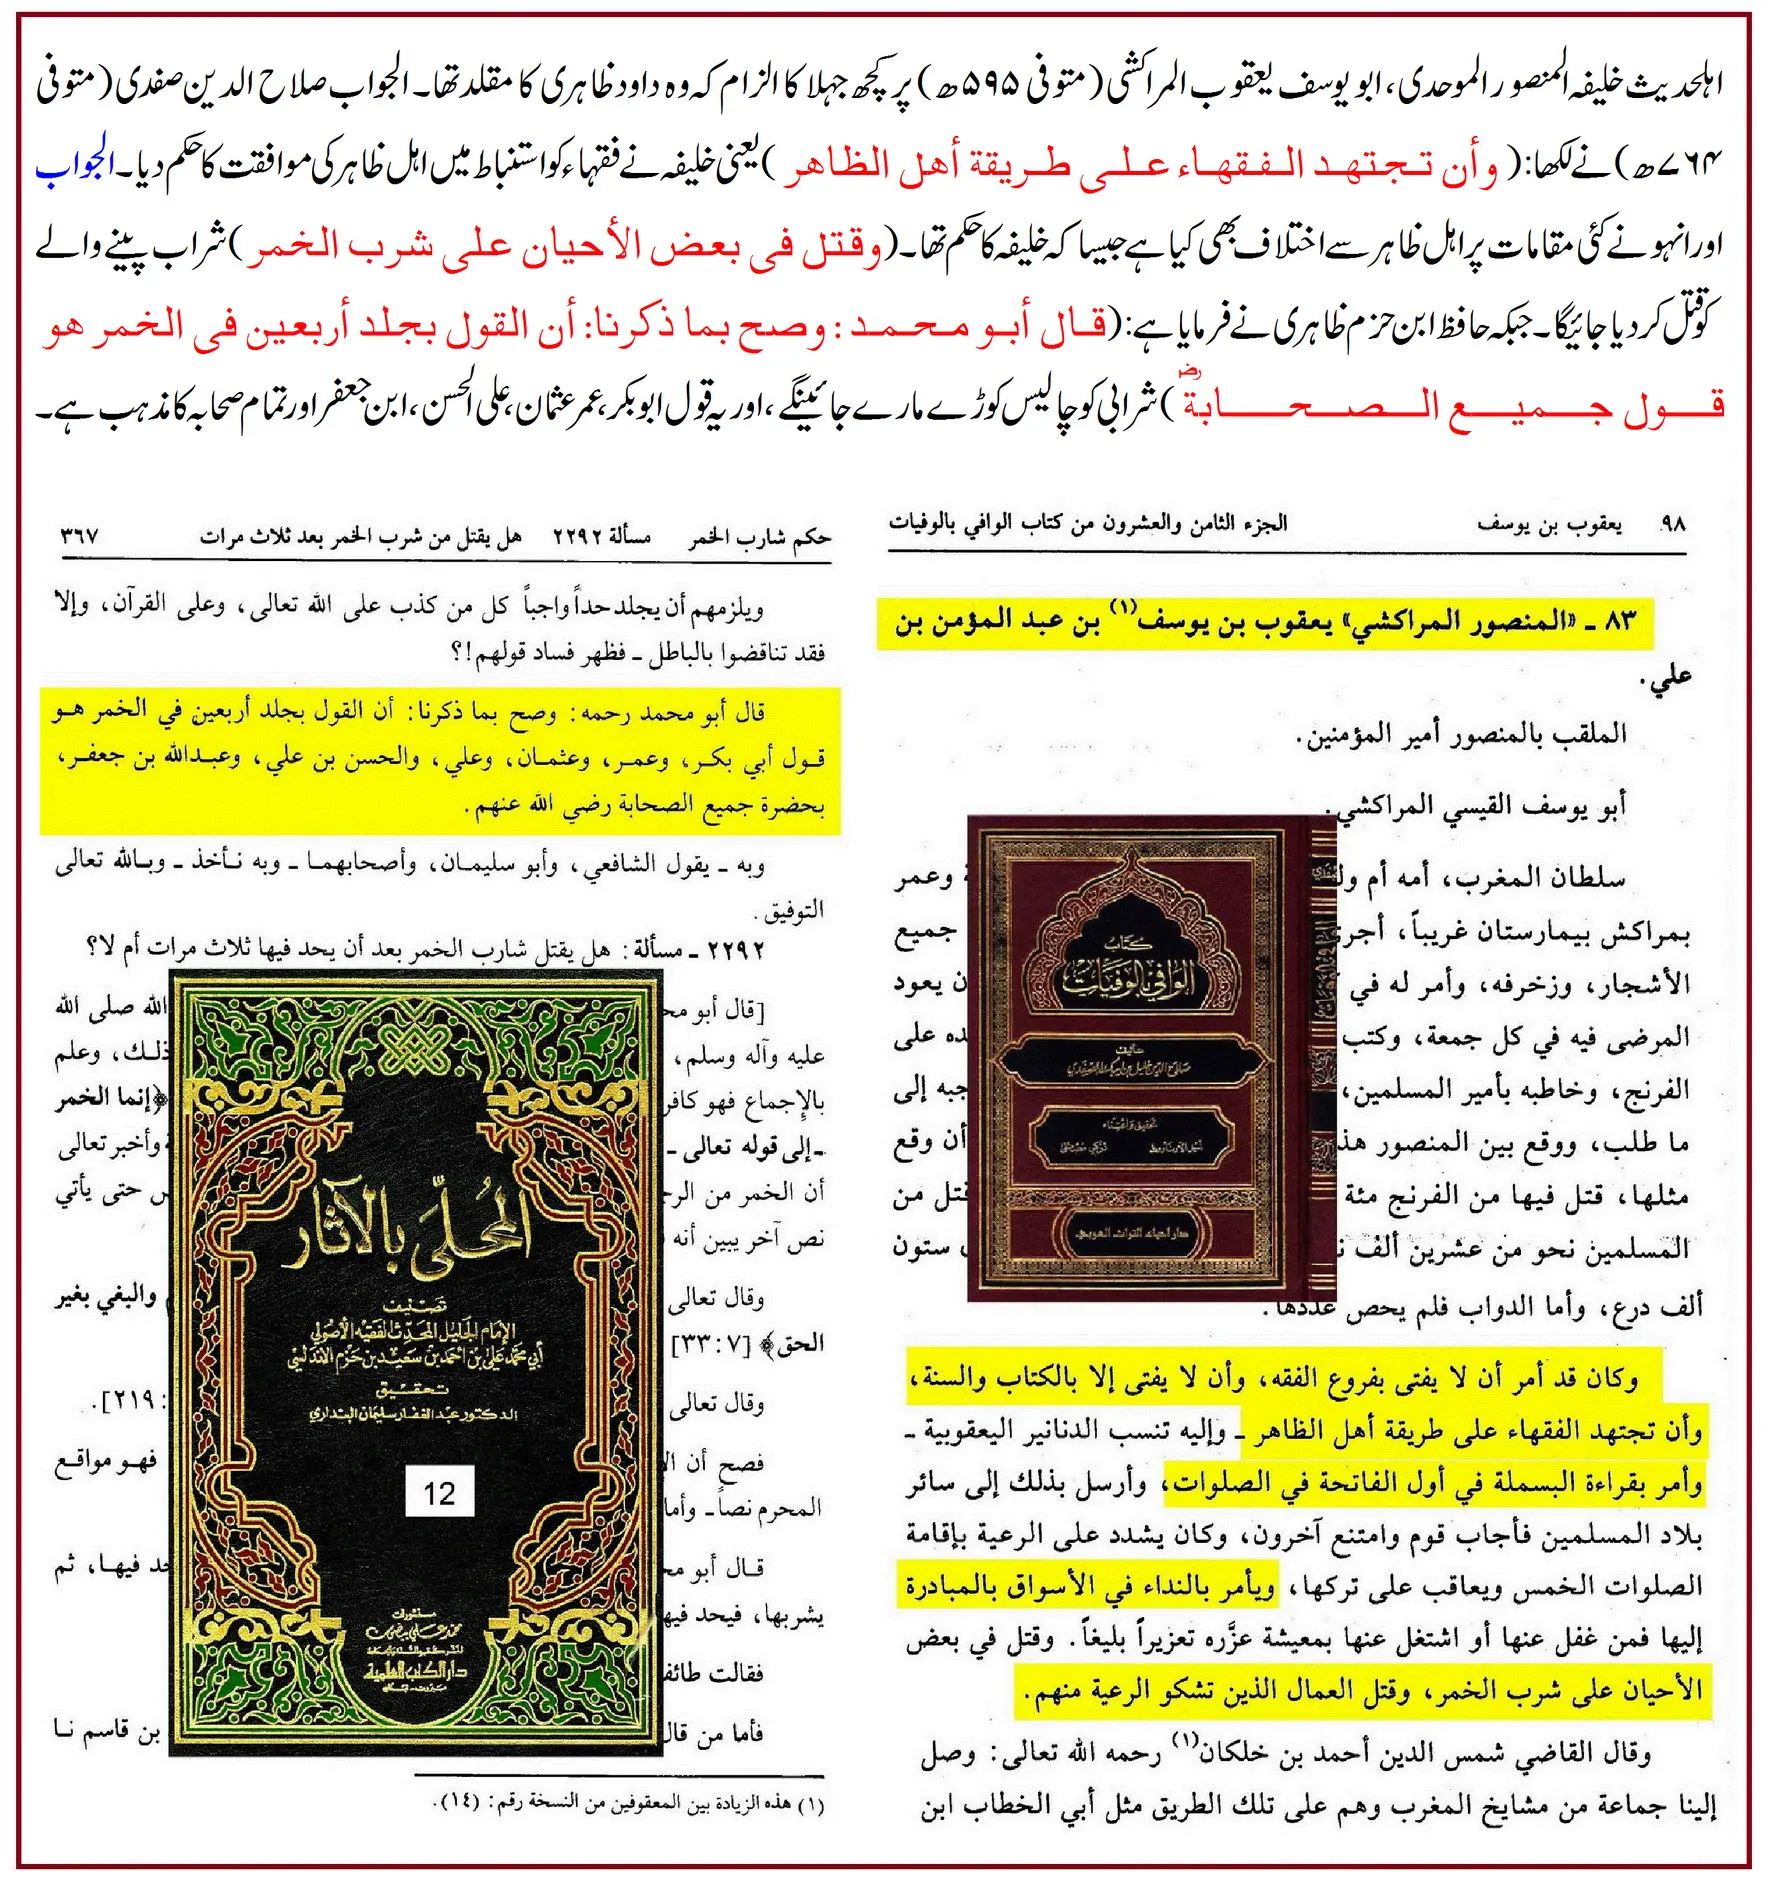 اہلحدیث خلیفہ المنصور الموحدی، ابو یوسف یعقوب المراکشی (متوفی ۵۹۵ھ) پر کچھ جہلا کا الزام کہ وہ داود ظاہری کا مقلد تھا۔ الجواب صلاح الدین صفدی (متوفی
۷۶۴ھ) نے لکھا: (وأن تجتهد الفقهاء على طريقة أهل الظاهر) یعنی خلیفہ نے فقہاء کو استنباط میں اہل ظاہر کی موافقت کا حکم دیا۔ الجواب
اور انہو نے کئی مقامات پر اہل ظاہر سے اختلاف بھی کیا ہے جیسا کہ خلیفہ کا حکم تھا۔ (وقتل فى بعض الأحيان على شرب الخمر) شراب پینے والے
کو قتل کر دیا جائیگا۔ جبکہ حافظ ابن حزم ظاہری نے فرمایا ہے: (قال أبو محمد: وصح بما ذكرنا: أن القول بجلد أربعين فى الخمر هو
قول جميع الصحابةؓ) شرابی کو چالیس کوڑے مارے جائینگے، اور یہ قول ابو بکر، عمر عثمان، علی الحسن، ابن جعفر اور تمام صحابہ کا مذہب ہے۔
٩٨ يعقوب بن يوسف الجزء الثامن والعشرون من كتاب الوافي بالوفيات
٨٣ ـ «المنصور المراكشي» يعقوب بن يوسف(١) بن عبد المؤمن بن
علي.
الملقب بالمنصور أمير المؤمنين.
أبو يوسف القيسي المراكشي.
سلطان المغرب، أمه أم ول وعمر
بمراكش بيمارستان غريباً، أجر جميع
الأشجار، وزخرفه، وأمر له في ن يعود
المرضى فيه في كل جمعة، وكتب ده على
الفرنج، وخاطبه بأمير المسلمين، جبه إلى
ما طلب، ووقع بين المنصور هذ أن وقع
مثلها، قتل فيها من الفرنج مئة قتل من
المسلمين نحو من عشرين ألف ستون
ألف درع، وأما الدواب فلم يحص عددها.
كتاب
الوافي بالوفيات
تأليف
صلاح الدين خليل بن أيبك الصفدي
تحقيق واعتناء
أحمد الأرناؤوط تركي مصطفى
دار إحياء التراث العربي
وكان قد أمر أن لا يفتى بفروع الفقه، وأن لا يفتى إلا بالكتاب والسنة،
وأن تجتهد الفقهاء على طريقة أهل الظاهر ـ وإليه تنسب الدنانير اليعقوبية ـ
وأمر بقراءة البسملة في أول الفاتحة في الصلوات، وأرسل بذلك إلى سائر
بلاد المسلمين فأجاب قوم وامتنع آخرون، وكان يشدد على الرعية بإقامة
الصلوات الخمس ويعاقب على تركها، ويأمر بالنداء في الأسواق بالمبادرة
إليها فمن غفل عنها أو اشتغل عنها بمعيشة عزَّره تعزيراً بليغاً. وقتل في بعض
الأحيان على شرب الخمر، وقتل العمال الذين تشكو الرعية منهم.
وقال القاضي شمس الدين أحمد بن خلكان(١) رحمه الله تعالى: وصل
إلينا جماعة من مشايخ المغرب وهم على تلك الطريق مثل أبي الخطاب ابن
حكم شارب الخمر مسألة ٢٢٩٢ هل يقتل من شرب الخمر بعد ثلاث مرات ٣٦٧
ويلزمهم أن يجلد حداً واجباً كل من كذب على الله تعالى، وعلى القرآن، وإلا
فقد تناقضوا بالباطل ـ فظهر فساد قولهم!؟
قال أبو محمد رحمه: وصح بما ذكرنا: أن القول بجلد أربعين في الخمر هو
قول أبي بكر، وعمر، وعثمان، وعلي، والحسن بن علي، وعبدالله بن جعفر،
بحضرة جميع الصحابة رضي الله عنهم.
وبه ـ يقول الشافعي، وأبو سليمان، وأصحابهما ـ وبه نأخذ ـ وبالله تعالى
التوفيق.
٢٢٩٢ ـ مسألة: هل يقتل شارب الخمر بعد أن يحد فيها ثلاث مرات أم لا؟
[قال أبو مح الله صلى الله
عليه وآله وسلم، ذلك، وعلم
بالإجماع فهو كافر ﴿إنما الخمر
ـ إلى قوله تعالى ـ وأخبر تعالى
أن الخمر من الرج س حتى يأتي
نص آخر يبين أنه
وقال تعالى والبغي بغير
الحق﴾ [٧:٣٣]
وقال تعالى :٢١٩].
فصح أن ال فهو مواقع
المحرم نصاً ـ وأما
قال أبو مح حد فيها، ثم
يشربها، فيحد فيه
فقالت طائف
فأما من قال بن قاسم نا
(١) هذه الزيادة بين المعقوفين من النسخة رقم: (١٤).
المحلى بالآثار
تصنيف
الإمام الجليل المحدث الفقيه الأصولي
أبي محمد علي بن أحمد بن سعيد بن حزم الأندلسي
تحقيق
الدكتور عبد الغفار سليمان البنداري
12
منشورات
محمد علي بيضون
دار الكتب العلمية
بيروت - لبنان